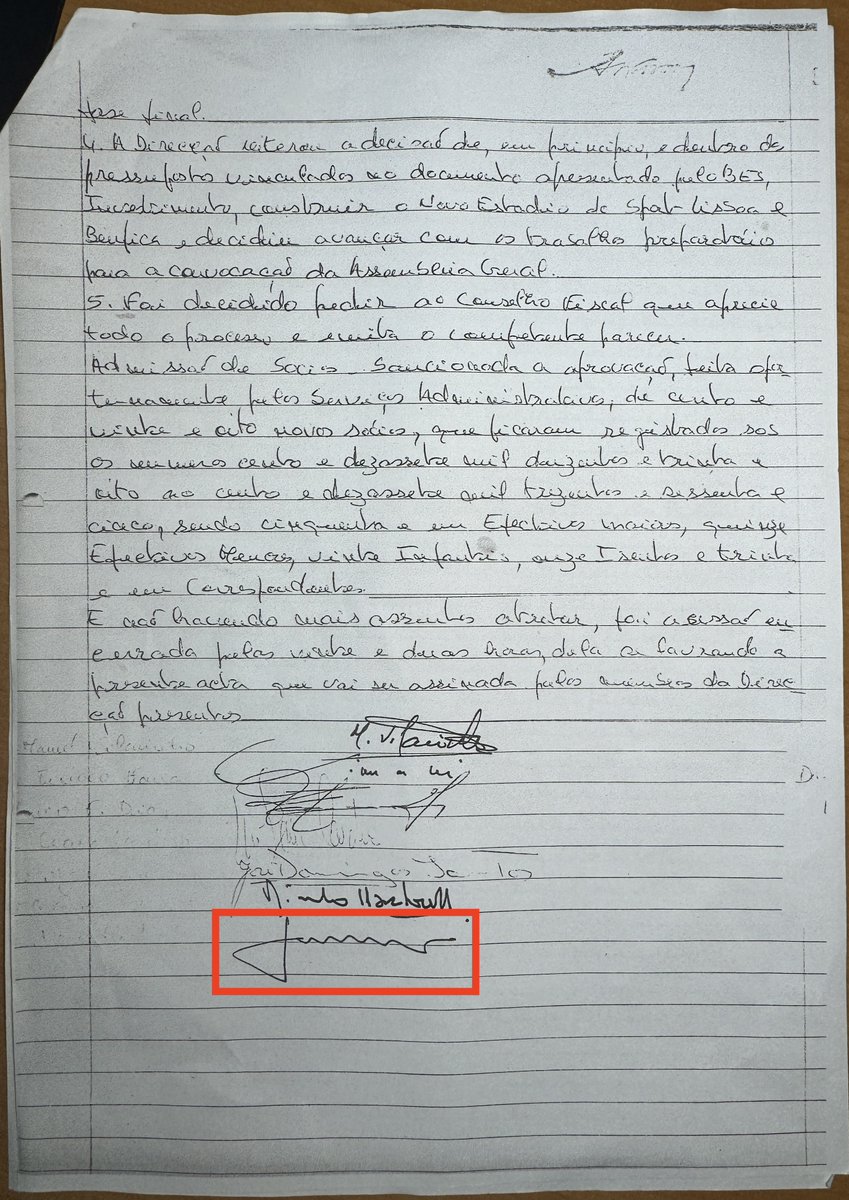 fase fiscal.
4. A Direcção reiterou a decisão de, em princípio, e dentro de
pressupostos vinculados no documento apresentado pelo BES,
Investimento, construir o Novo Estadio do Sport Lisboa e
Benfica e decidiu avançar com os trabalhos preparatórios
para a convocação da Assembleia Geral.
5. Foi decidido pedir ao Conselho Fiscal que aprecie
todo o processo e emita o competente parecer.
Admissão de Socios - Sancionada a aprovação, feita
pelos Serviços Administrativos, de cento e
vinte e oito novos sócios, que ficaram registados sob
os numeros cento e dezassete mil duzentos e trinta e
oito ao cento e dezassete mil trezentos e sessenta e
cinco, sendo cinquenta e um Efectivos Maiores, quinze
Efectivos Menores, vinte Infantis, onze Isentos e trinta
e um Correspondentes.
E não havendo mais assuntos a tratar, foi a sessão en
cerrada pelas vinte e duas horas, dela se lavrando a
presente acta que vai ser assinada pelos membros da Direc
ção presentes
M. Vilarinho
José Domingos Santos